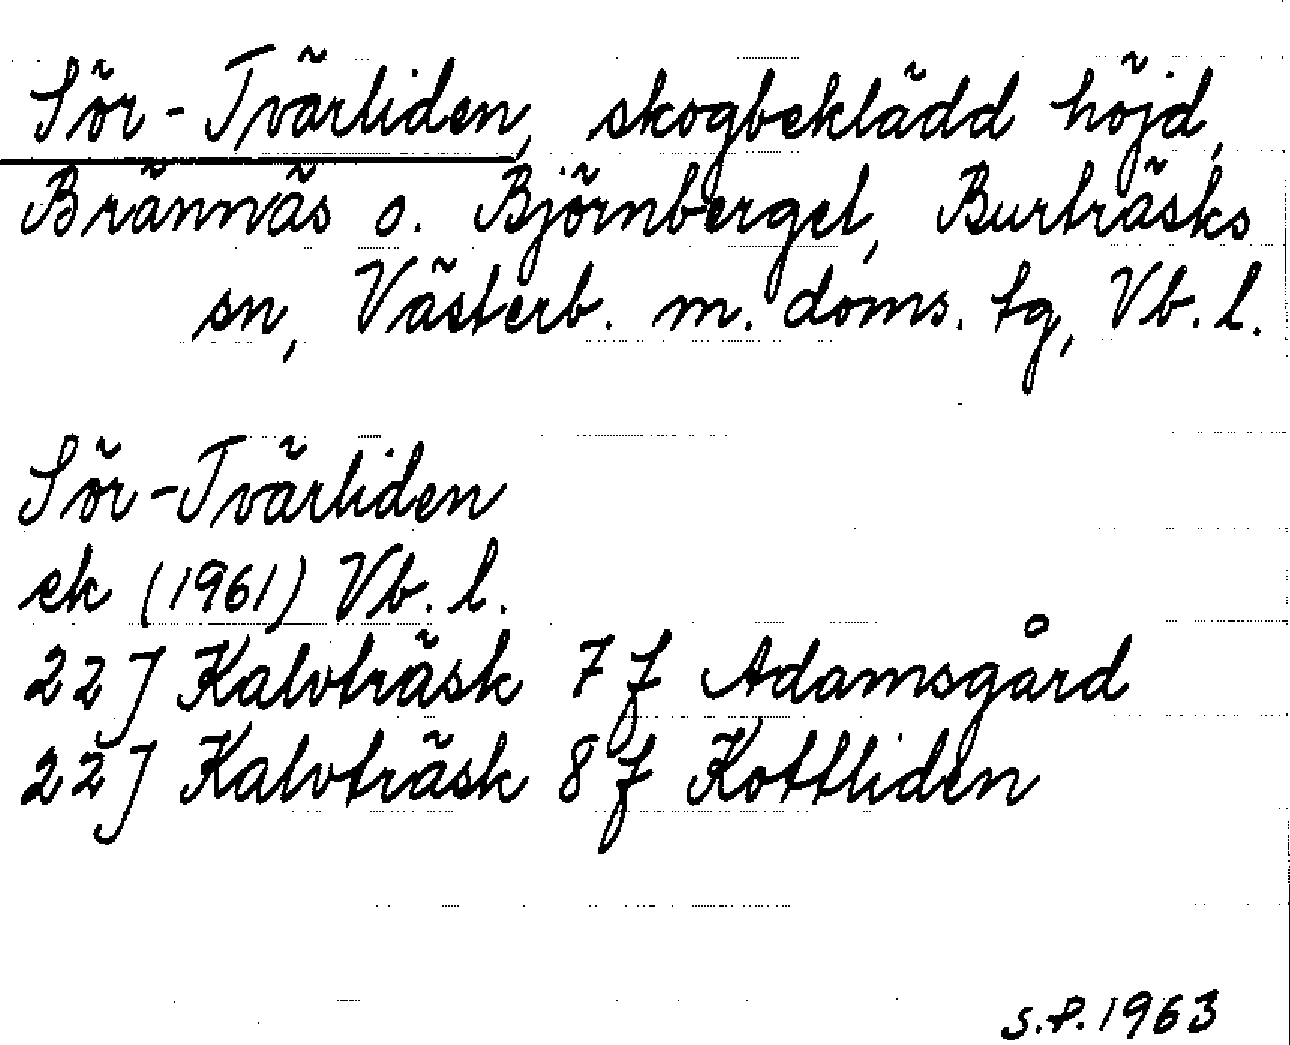 Sör-Tvärliden, skogbeklädd höjd,
Brännäs o. Björnberget, Burträsks
sn, Västerb. m. doms. tg, Vb. l.
Sör-Tvärliden
ek (1961) Vb. l.
22J Kalvträsk 7f Adamsgård
22J Kalvträsk 8f Kottliden
S.P. 1963